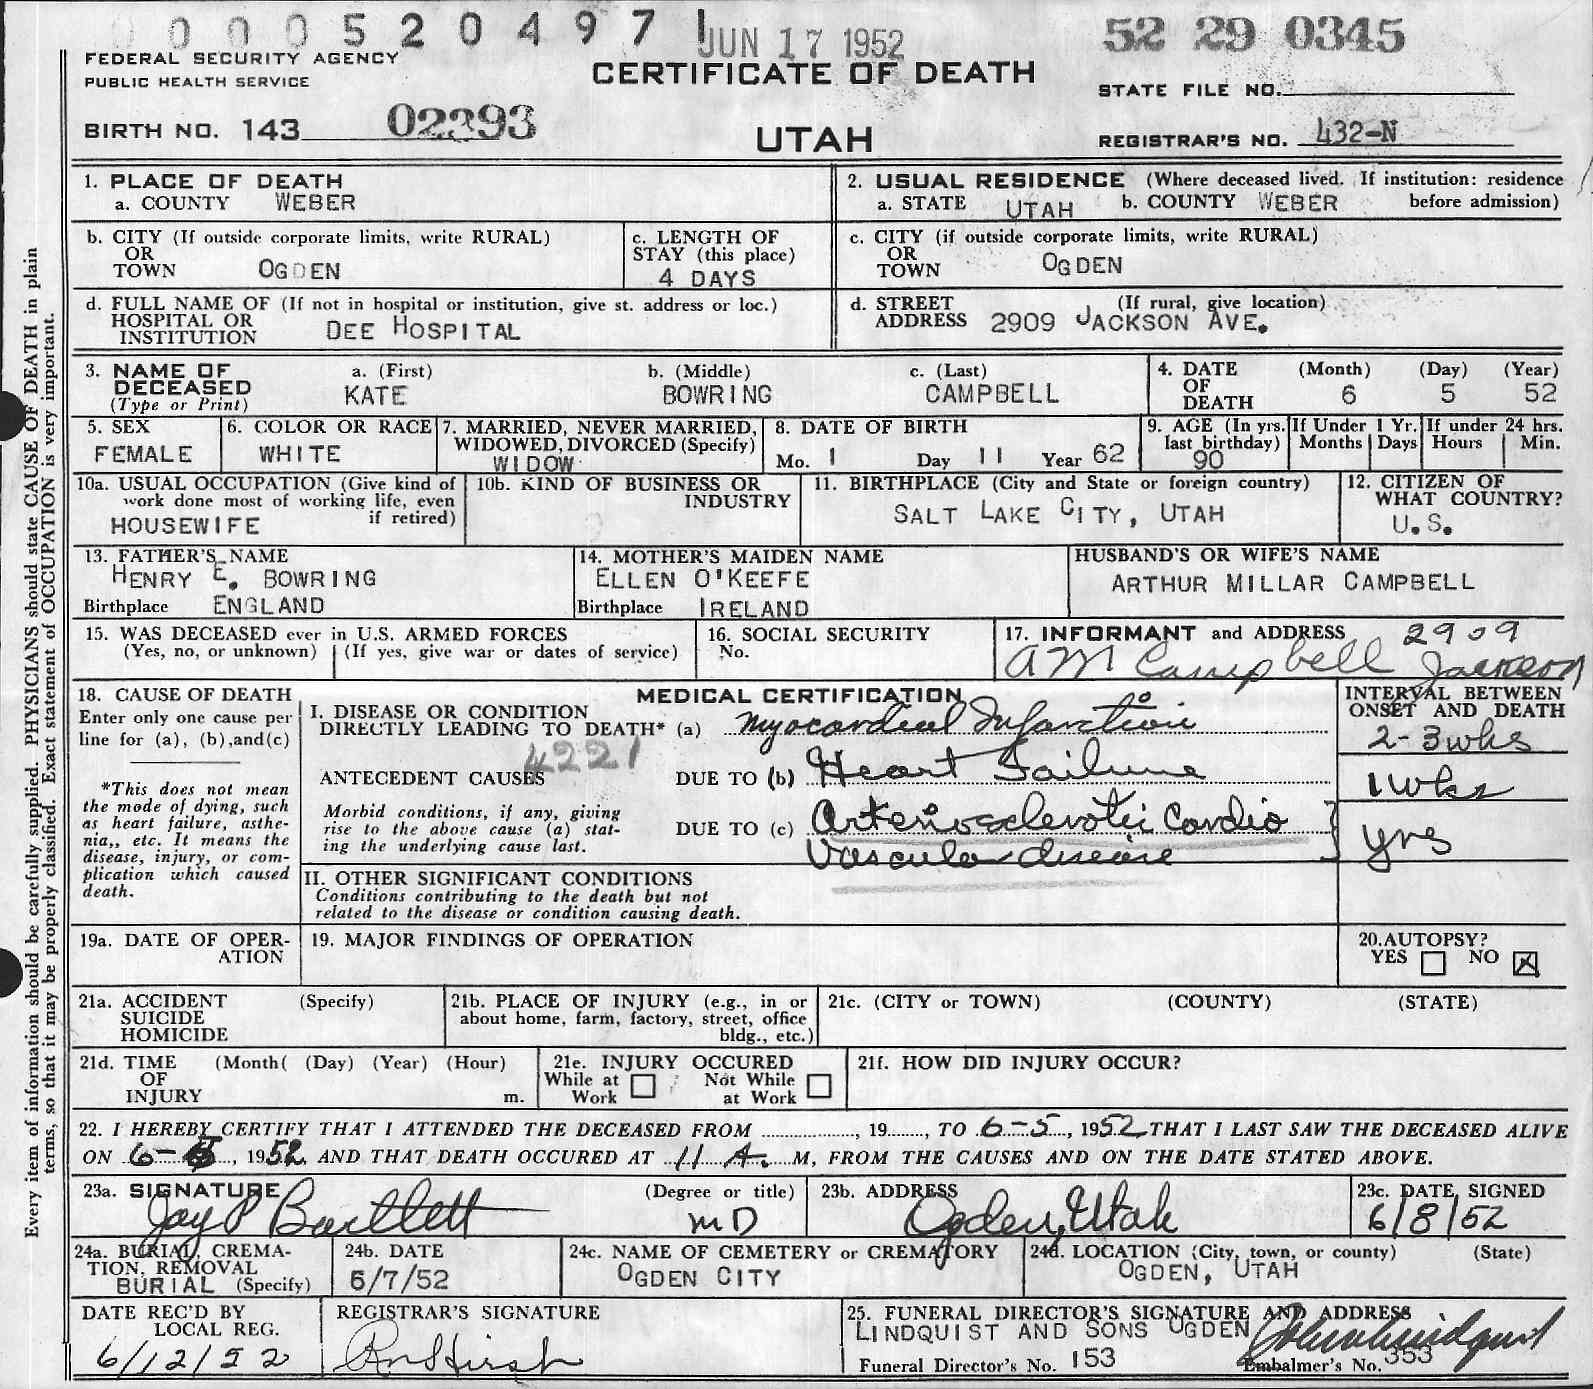 000520497 JUN 17 1952 52 29 0345
FEDERAL SECURITY AGENCY
PUBLIC HEALTH SERVICE
CERTIFICATE OF DEATH
STATE FILE NO.
BIRTH NO. 143 02393
UTAH
REGISTRAR'S NO. 432-N
1. PLACE OF DEATH
a. COUNTY WEBER
2. USUAL RESIDENCE (Where deceased lived. If institution: residence
a. STATE UTAH b. COUNTY WEBER before admission)
b. CITY (If outside corporate limits, write RURAL)
OR
TOWN OGDEN
c. LENGTH OF
STAY (this place)
4 DAYS
c. CITY (if outside corporate limits, write RURAL)
OR
TOWN OGDEN
d. FULL NAME OF (If not in hospital or institution, give st. address or loc.)
HOSPITAL OR
INSTITUTION DEE HOSPITAL
d. STREET (If rural, give location)
ADDRESS 2909 JACKSON AVE.
3. NAME OF
DECEASED
(Type or Print)
a. (First)
KATE
b. (Middle)
BOWRING
c. (Last)
CAMPBELL
4. DATE
OF
DEATH
(Month) (Day) (Year)
6 5 52
5. SEX
FEMALE
6. COLOR OR RACE
WHITE
7. MARRIED, NEVER MARRIED,
WIDOWED, DIVORCED (Specify)
WIDOW
8. DATE OF BIRTH
Mo. 1 Day 11 Year 62
9. AGE (In yrs.
last birthday)
90
If Under 1 Yr.
Months Days
If under 24 hrs.
Hours Min.
10a. USUAL OCCUPATION (Give kind of
work done most of working life, even
if retired)
HOUSEWIFE
10b. KIND OF BUSINESS OR
INDUSTRY
11. BIRTHPLACE (City and State or foreign country)
SALT LAKE CITY, UTAH
12. CITIZEN OF
WHAT COUNTRY?
U.S.
13. FATHER'S NAME
HENRY E. BOWRING
Birthplace ENGLAND
14. MOTHER'S MAIDEN NAME
ELLEN O'KEEFE
Birthplace IRELAND
HUSBAND'S OR WIFE'S NAME
ARTHUR MILLAR CAMPBELL
15. WAS DECEASED ever in U.S. ARMED FORCES
(Yes, no, or unknown) (If yes, give war or dates of service)
16. SOCIAL SECURITY
No.
17. INFORMANT and ADDRESS 2909
AM Campbell Jackson
18. CAUSE OF DEATH
Enter only one cause per
line for (a), (b),and(c)
*This does not mean
the mode of dying, such
as heart failure, asthe-
nia,, etc. It means the
disease, injury, or com-
plication which caused
death.
MEDICAL CERTIFICATION
I. DISEASE OR CONDITION
DIRECTLY LEADING TO DEATH* (a) Myocardial Infarction
4221
ANTECEDENT CAUSES DUE TO (b) Heart Failure
Morbid conditions, if any, giving
rise to the above cause (a) stat-
ing the underlying cause last.
DUE TO (c) Arteriosclerotic Cardio
Vascular disease
INTERVAL BETWEEN
ONSET AND DEATH
2-3 wks
1 wks
yrs
II. OTHER SIGNIFICANT CONDITIONS
Conditions contributing to the death but not
related to the disease or condition causing death.
19a. DATE OF OPER-
ATION
19. MAJOR FINDINGS OF OPERATION
20. AUTOPSY?
YES NO X
21a. ACCIDENT (Specify)
SUICIDE
HOMICIDE
21b. PLACE OF INJURY (e.g., in or
about home, farm, factory, street, office
bldg., etc.)
21c. (CITY or TOWN) (COUNTY) (STATE)
21d. TIME (Month( (Day) (Year) (Hour)
OF
INJURY m.
21e. INJURY OCCURED
While at Not While
Work at Work
21f. HOW DID INJURY OCCUR?
22. I HEREBY CERTIFY THAT I ATTENDED THE DECEASED FROM ............, 19......, TO 6-5, 1952, THAT I LAST SAW THE DECEASED ALIVE
ON 6-5, 1952, AND THAT DEATH OCCURED AT 11 A. M, FROM THE CAUSES AND ON THE DATE STATED ABOVE.
23a. SIGNATURE (Degree or title)
Jay P Bartlett MD
23b. ADDRESS
Ogden, Utah
23c. DATE SIGNED
6/8/52
24a. BURIAL, CREMA-
TION, REMOVAL
BURIAL (Specify)
24b. DATE
6/7/52
24c. NAME OF CEMETERY or CREMATORY
OGDEN CITY
24d. LOCATION (City, town, or county) (State)
OGDEN, UTAH
DATE REC'D BY
LOCAL REG.
6/12/52
REGISTRAR'S SIGNATURE
25. FUNERAL DIRECTOR'S SIGNATURE AND ADDRESS
LINDQUIST AND SONS OGDEN
Funeral Director's No. 153 Embalmer's No. 353
Every item of information should be carefully supplied. PHYSICIANS should state CAUSE OF DEATH in plain
terms, so that it may be properly classified. Exact statement of OCCUPATION is very important.